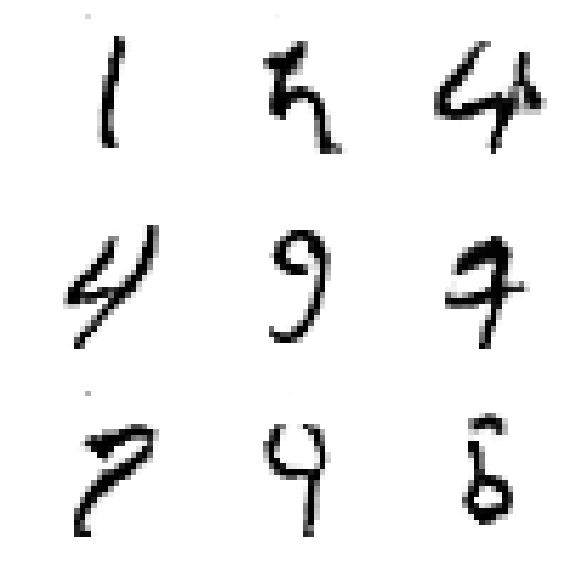 1 5 4
4 9 7
7 9 6